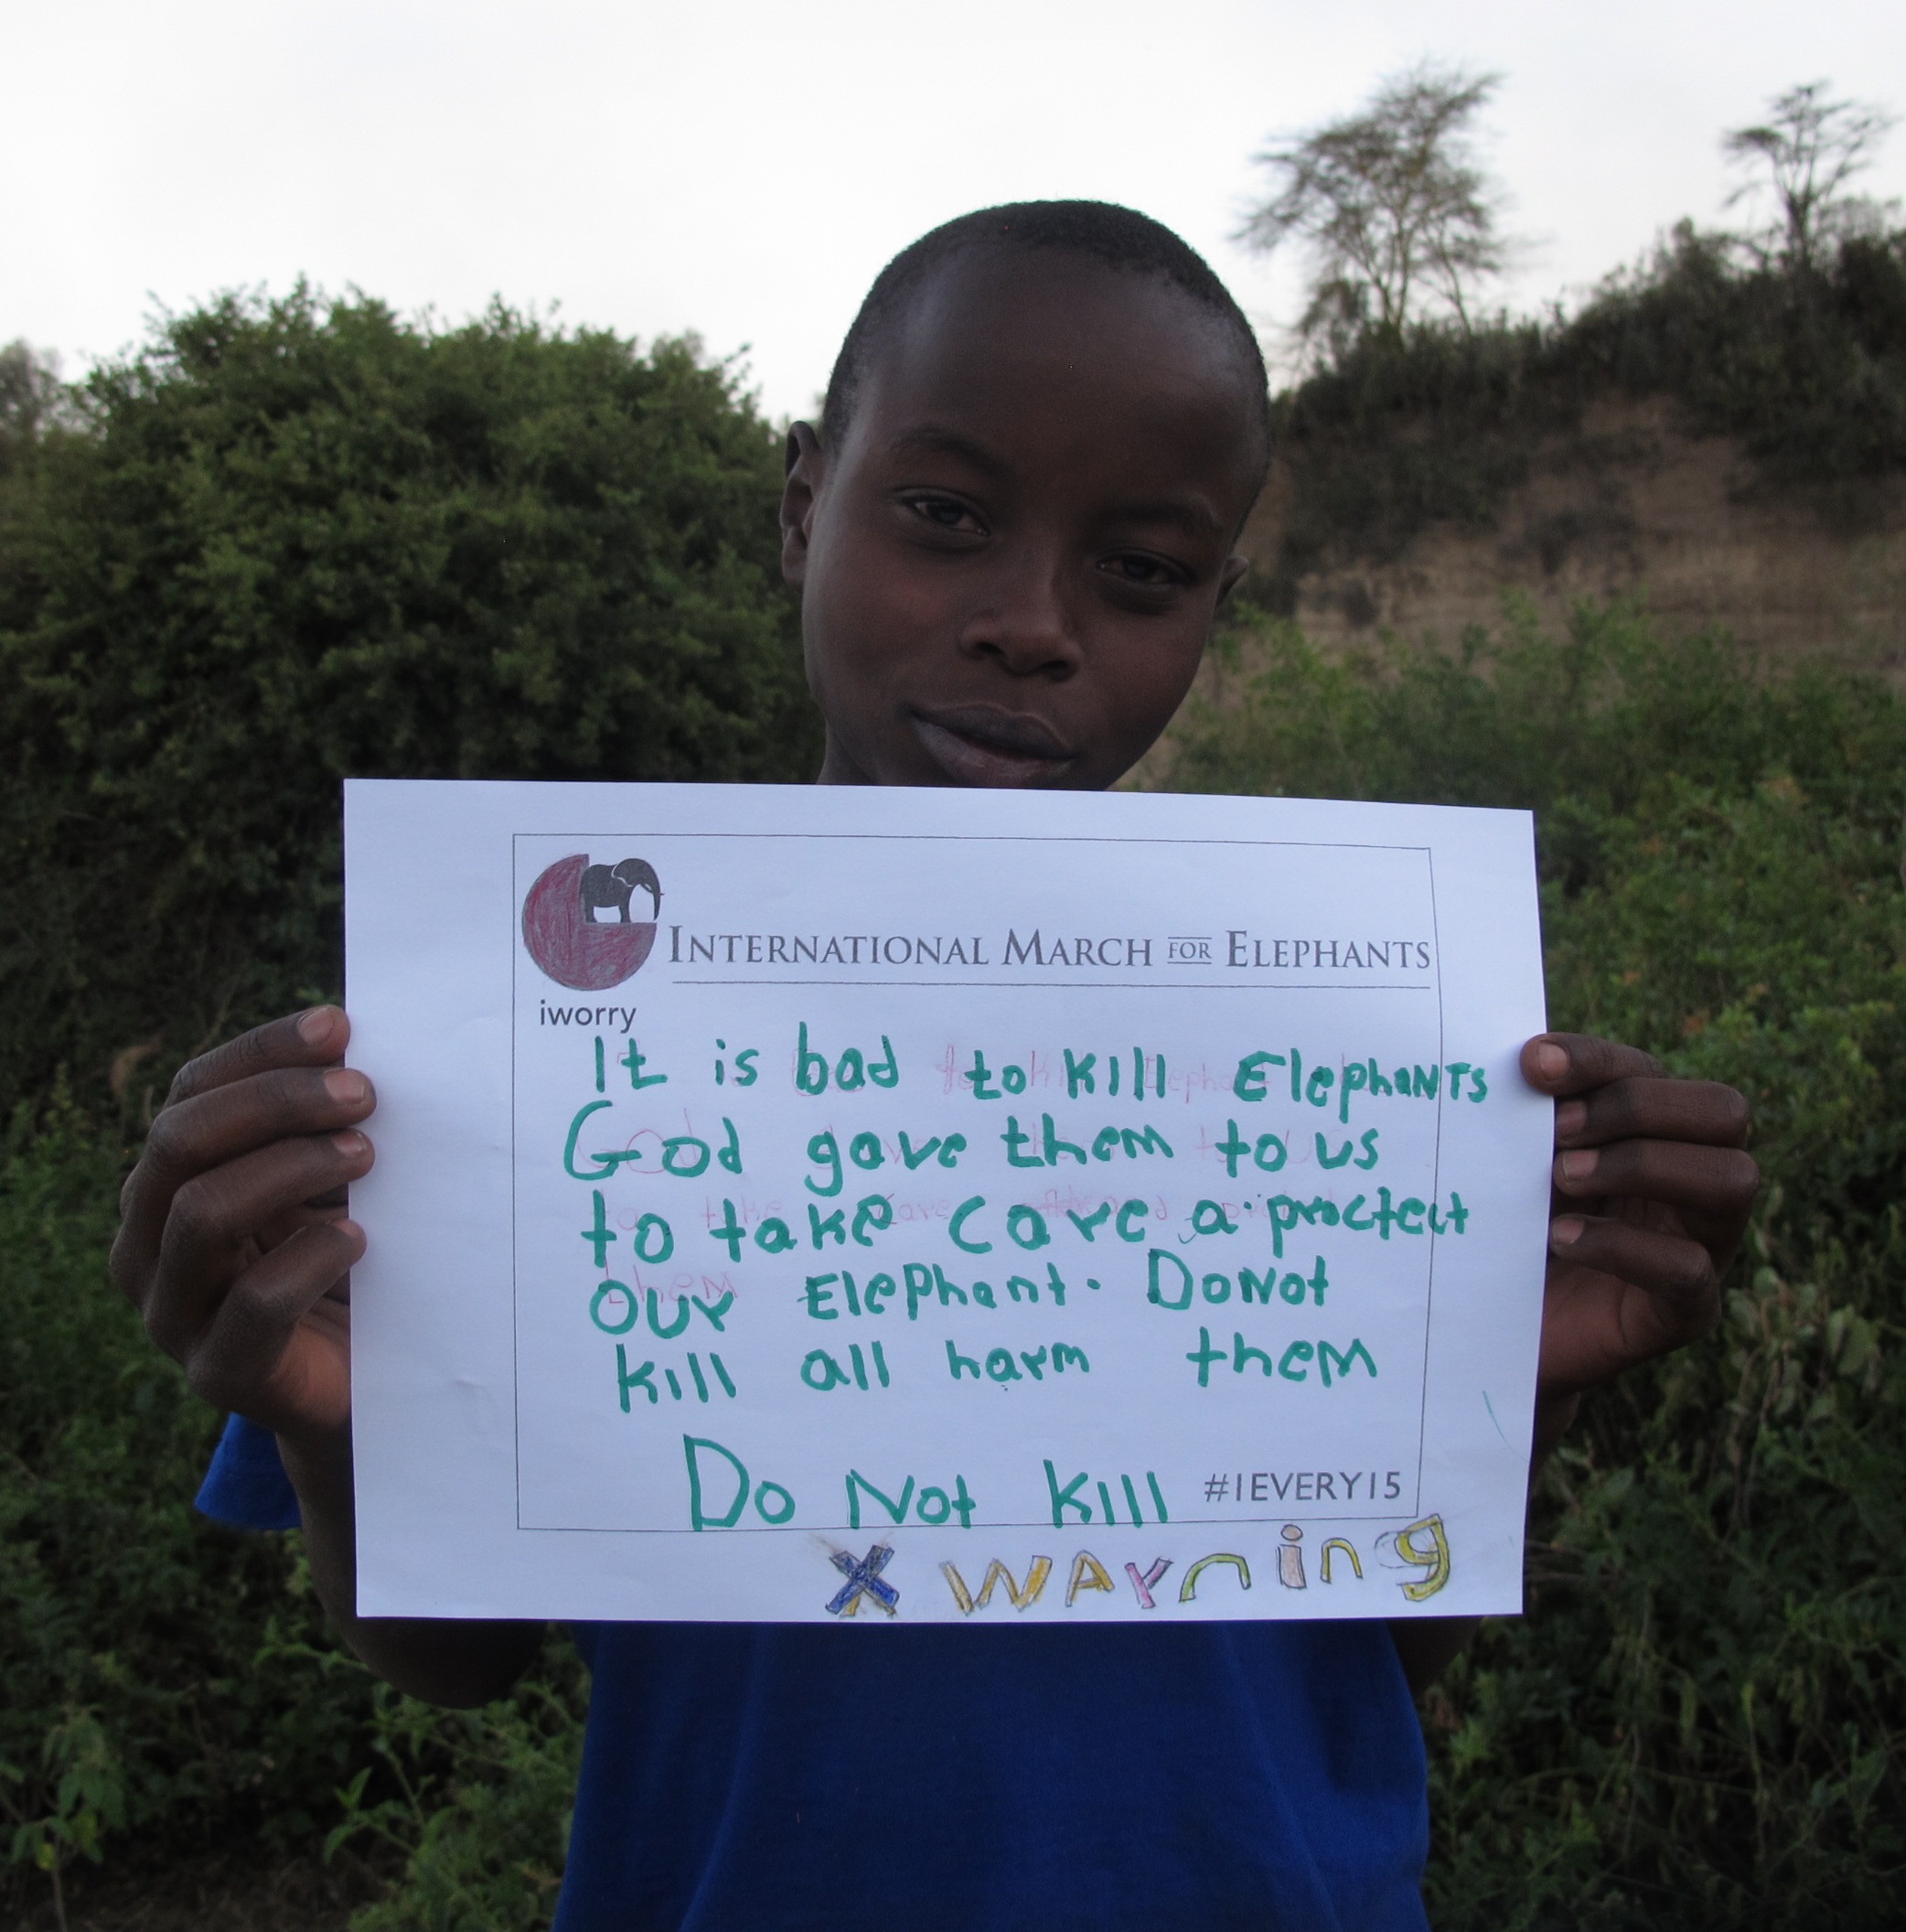 INTERNATIONAL MARCH FOR ELEPHANTS
iworry
It is bad to kill ElephaNTs
God gave them to us
to take care a protect
our Elephant. DoNot
kill all harm them
Do Not kill #1EVERY15
X WARning